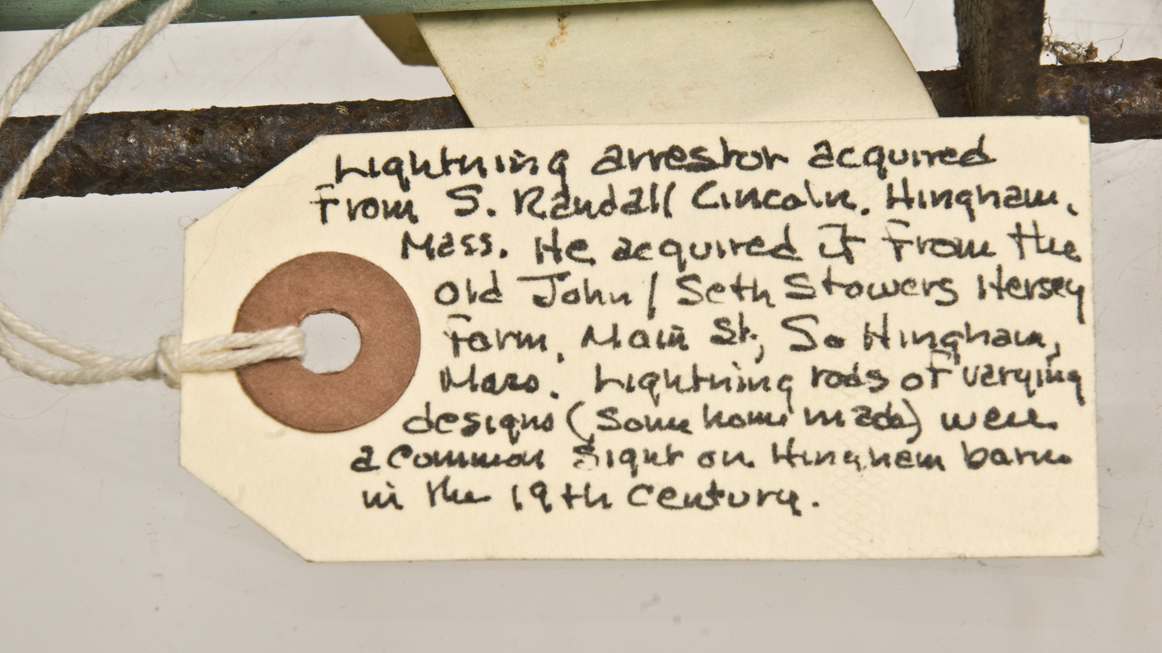 Lightning arrestor acquired
From S. Randall Lincoln. Hingham,
Mass. He acquired it from the
old John / Seth Stowers Hersey
farm, Main St, So Hingham,
Mass. Lightning rods of varying
designs (some home made) were
a common sight on Hingham barns
in the 19th century.